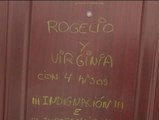 ROGELIO
Y
VIRGINIA
CON 4 HIJOS
¡¡¡ INDIGNACIÓN !!!
E